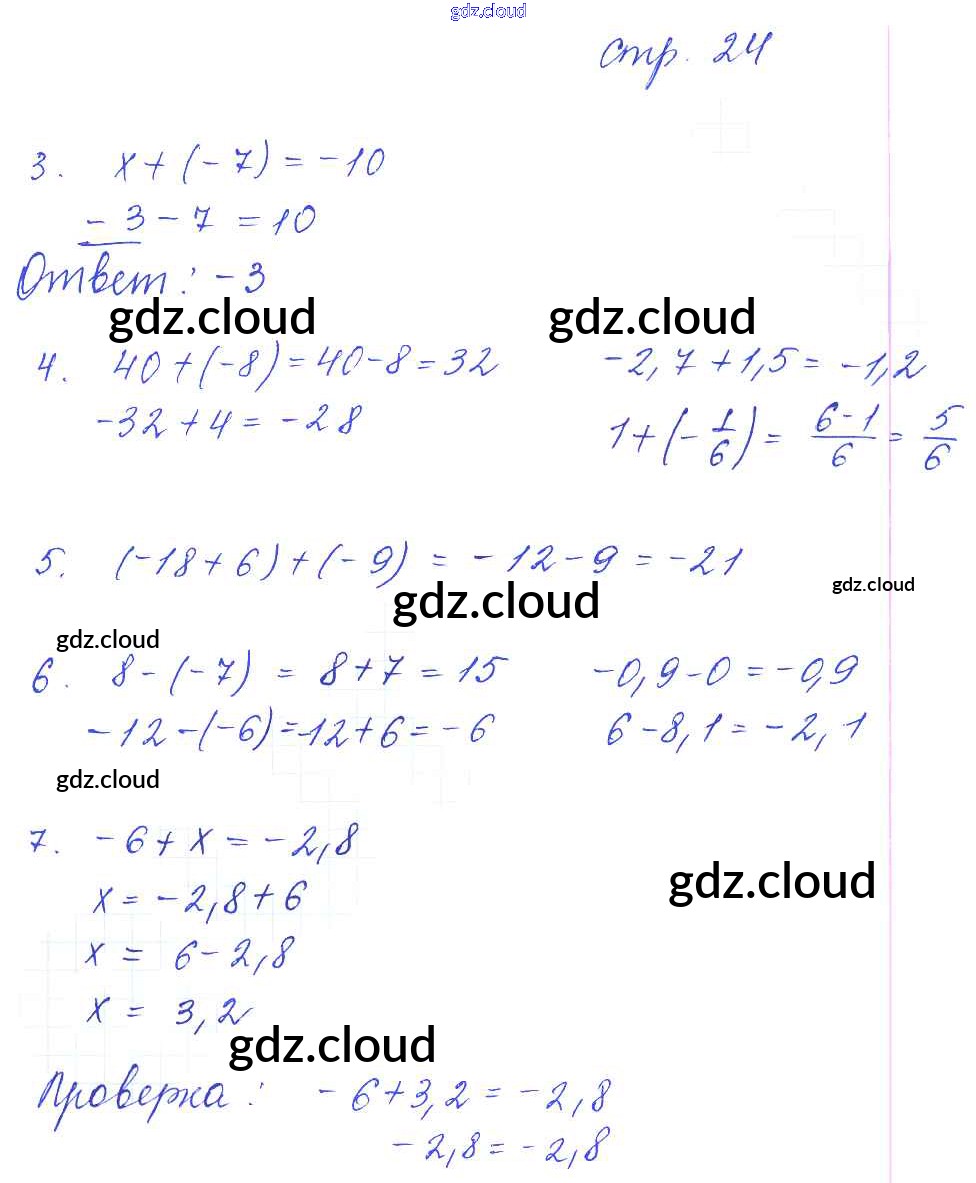 gdz.cloud
стр. 24
3. x + (-7) = -10
-3 - 7 = 10
Ответ: -3
gdz.cloud gdz.cloud
4. 40 + (-8) = 40 - 8 = 32 -2,7 + 1,5 = -1,2
-32 + 4 = -28 1 + (-1/6) = (6-1)/6 = 5/6
5. (-18 + 6) + (-9) = -12 - 9 = -21
gdz.cloud
gdz.cloud
gdz.cloud
6. 8 - (-7) = 8 + 7 = 15 -0,9 - 0 = -0,9
-12 - (-6) = -12 + 6 = -6 6 - 8,1 = -2,1
gdz.cloud
7. -6 + x = -2,8
x = -2,8 + 6
gdz.cloud
x = 6 - 2,8
x = 3,2
gdz.cloud
Проверка: -6 + 3,2 = -2,8
-2,8 = -2,8